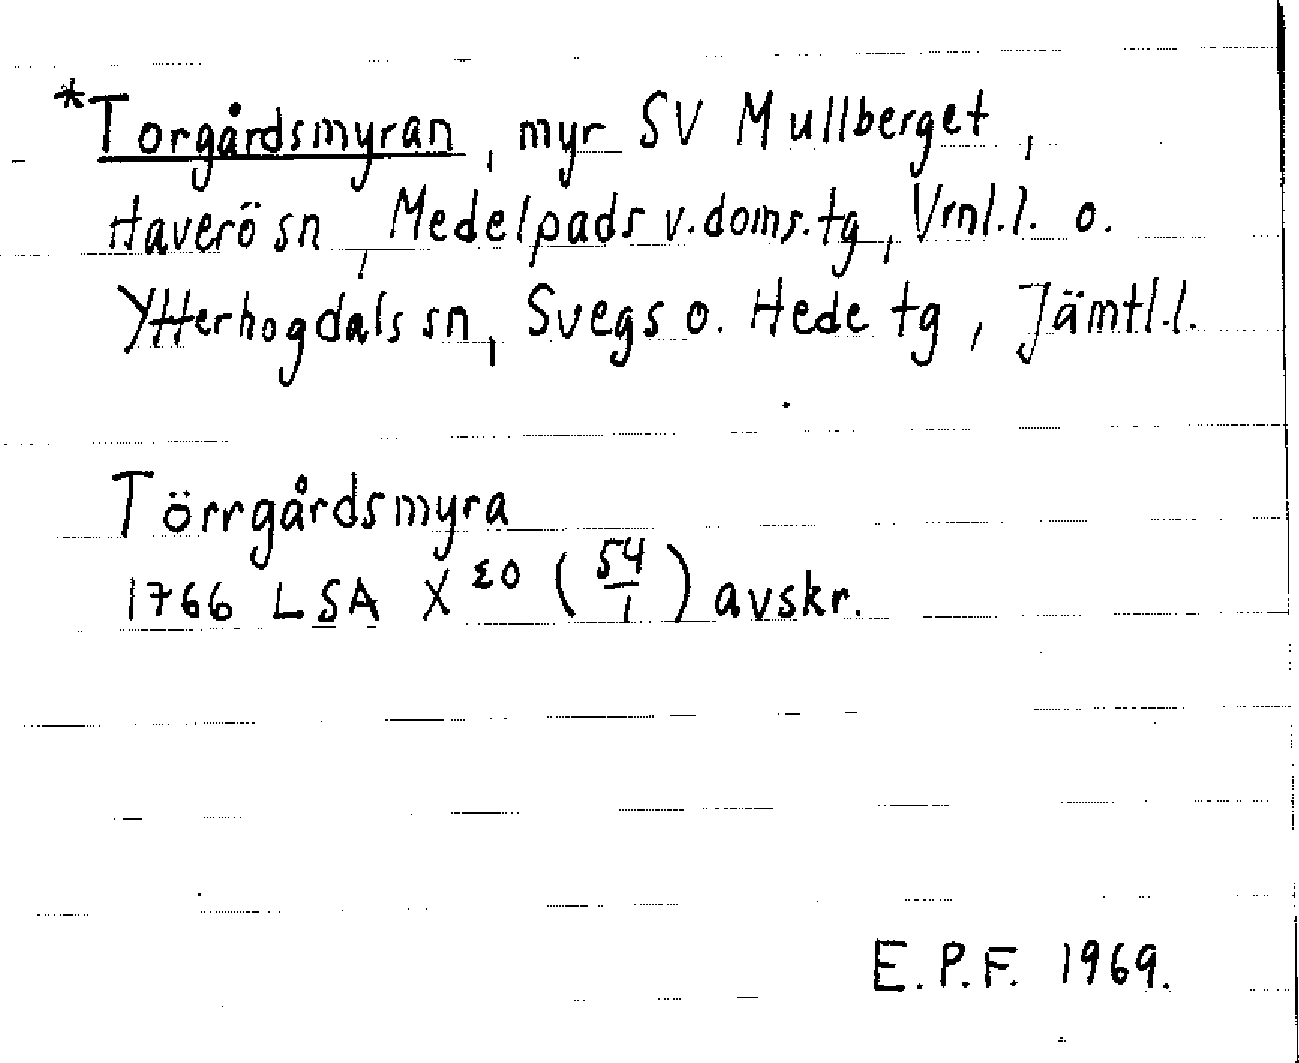 *Torgårdsmyran, myr SV Mullberget,
Haverö sn, Medelpads v. doms. tg, Vrnl. l. o.
Ytterhogdals sn, Svegs o. Hede tg, Jämtl. l.
Törrgårdsmyra
1766 LSA X 20 (54/1) avskr.
E.P.F. 1969.